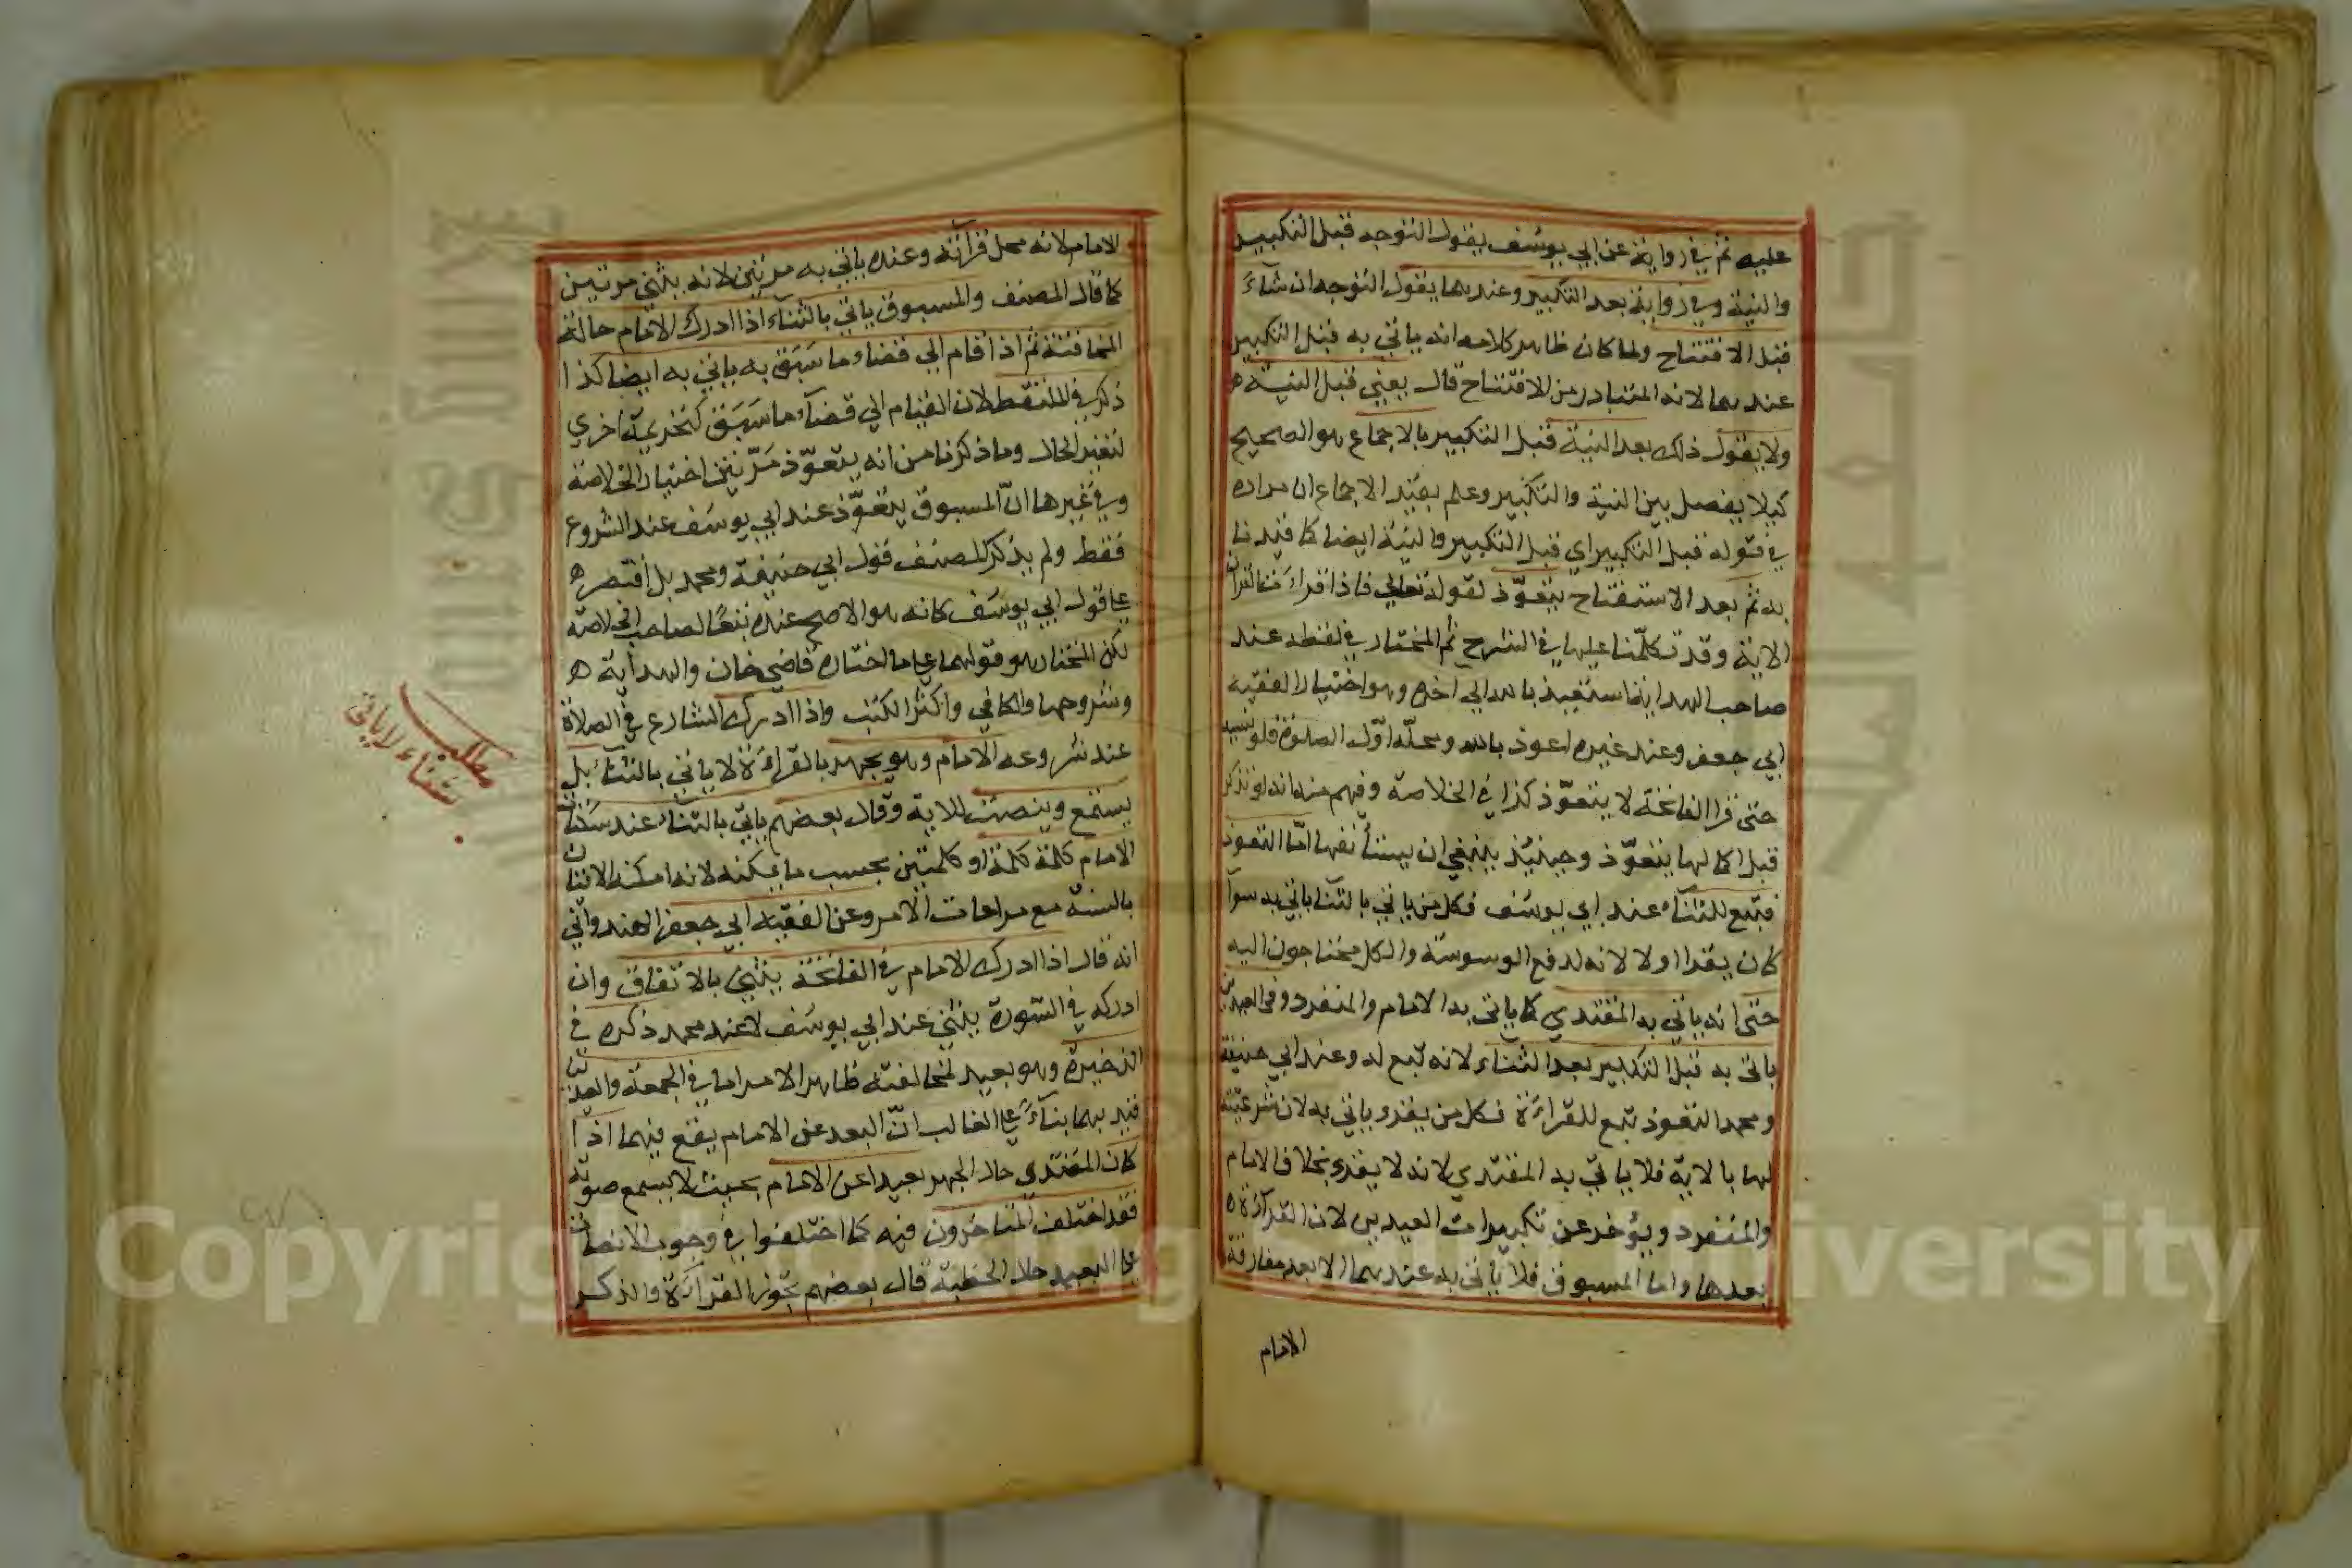 عليه ثم في رواية عن ابي يوسف يقول التوجه قبل التكبير
والنية وفي رواية بعد التكبير وعندهما يقول التوجه ان شآء
قبل الافتتاح ولما كان ظاهر كلامه انه ياتي به قبل التكبير
عندهما لانه المتبادر من الافتتاح قال يعني قبل النية ه
ولا يقول ذلك بعد النية قبل التكبير بالاجماع هو الصحيح
كيلا يفصل بين النية والتكبير وعلم بقيد الاجماع ان مراده
في قوله قبل التكبير اي قبل التكبير والنية ايضا كما قيدنا
به ثم بعد الاستفتاح يتعوّذ لقوله تعالي فاذا قرات القران
الاية وقد تكلّمنا عليها في الشرح ثم المختار في لفظه عند
صاحب الهداية استعيذ بالله الي اخره وهو اختيار الفقيه
ابي جعفر وعند غيره اعوذ بالله ومحلّه اوّل الصلوة فلو نسيه
حتى قرا الفاتحة لا يتعوّذ كذا في الخلاصة وفهم منه انه لو تذكر
قبل اكمالها يتعوّذ وحينئذ ينبغي ان يستأنفها امّا التعوذ
فتبع للثنآء عند ابي يوسف فكل من ياتي بالثنا ياتي به سوآ
كان يقرا اولا لانه لدفع الوسوسة والكل محتاجون اليه
حتى انه ياتي به المقتدي كما ياتي به الامام والمنفرد وفي العيدين
ياتي به قبل التكبير بعد الثناء لانه تبع له وعند ابي حنيفة
ومحمد التعوذ تبع للقراءة فكل من يقرء ياتي به لان شرعيّته
لها بالاية فلا ياتي به المقتدي لانه لا يقرء بخلاف الامام
والمنفرد ويؤخر عن تكبيرات العيدين لان القرآءة ه
بعدها واما المسبوق فلا ياتي به عندهما الا بعد مفارقة
الامام
الامام لانه محل قرآئته وعنده ياتي به مرتين لانه يثني مرتين
كما قال المصنف والمسبوق ياتي بالثناء اذا ادرك الامام حالة
المخافتة ثم اذا قام الي قضاء ما سَبَقَ به ياتي به ايضا كذا
ذكر في الملتقط لان القيام الي قضآء ما سَبَقَ كتحريمة اخري
لتغير الحال وما ذكرنا من انه يتعوّذ مَرّتين اختيار الخلاصة
وفي غيرها انّ المسبوق يتعوّذ عند ابي يوسَف عند الشروع
فقط ولم يذكر المصنف قول ابي حنيفة ومحمد بل اقتصر ه
علي قول ابي يوسَف كانه هو الاصح عنده تبعًا لصاحب الخلاصة
لكن المختار هو قولهما علي ما اختاره قاضي خان والهداية ه
وشروحها والكافي واكثر الكتب واذا ادرك الشارع في الصلاة
عند شروعه الامام وهو يجهر بالقراءة لا ياتي بالثنآء بل
يستمع وينصت للاية وقال بعضهم ياتي بالثناء عند سكتات
الامام كلمة كلمة او كلمتين بحسب ما يمكنه لانه امكنه الاتيان
بالسنة مع مراعات الامر وعن الفقيه ابي جعفر الهندواني
انه قال اذا ادرك الامام في الفاتحة يثني بالاتفاق وان
ادركه في السّورة يثني عند ابي يوسَف لا عند محمد ذكره في
الذخيرة وهو بعيد لمخالفته ظاهر الامر اما في الجمعة والعيدين
قيد بهما بنآءً علي الغالب انّ البعد عن الامام يقع فيهما اذا
كان المقتدي حال الجهر بعيدا عن الامام بحيث لا يسمع صوته
فقد اختلف المتاخرون فيه كما اختلفوا في وجوب الانصات
علي البعيد حال الخطبة قال بعضهم يجوز القرآءة والذكر
مطلب
ثناء لا ياتي
Copyright © King Saud University